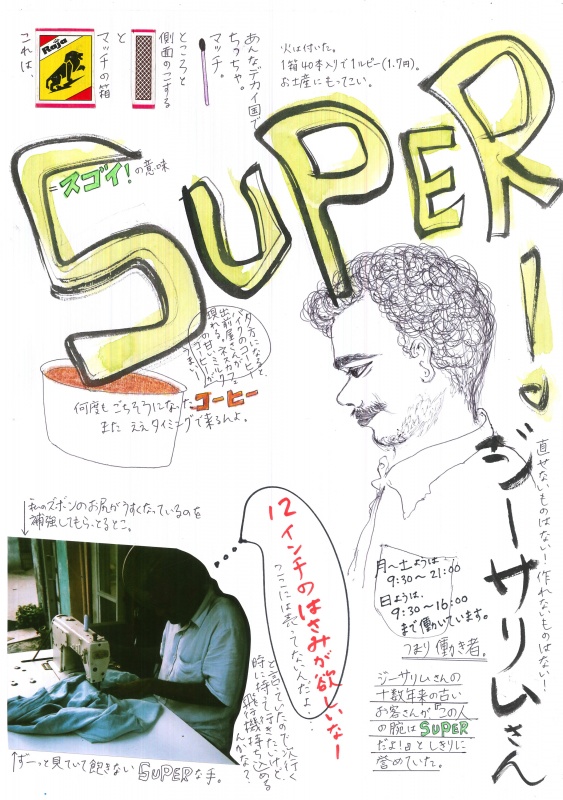 あんなデカイ国で
ちっちゃ。
マッチ。
ところと
側面のこする
と
マッチの箱
これは、
Raja
火は付いた。
1箱40本入りで1ルピー(1.7円)。
お土産にもってこい。
SUPER!
=スゴイ!の意味
夕方になると
出前屋さんが
現れる。ネスカフェ
の甘いミルク
うまい!
何度もごちそうになったコーヒー
また ええタイミングで来るんよ。
ジーサリムさん
直せないものはない!作れないものはない!
↓私のズボンのお尻がうすくなっているのを
補強してもらっとるとこ。
12インチのはさみが欲しいなー
ここには売ってないんだよ…
と言っていたので、次行く
時に持って行きたいけど、
飛行機持ち込める
んかな?
月〜土ようは
9:30〜21:00
日ようは、
9:30〜16:00
まで働いています。
つまり働き者。
ジーサリムさんの
十数年来の古い
お客さんが『この人
の腕はSUPER
だよ!』としきりに
誉めていた。
↑ずーっと見ていて飽きないSUPERな手。